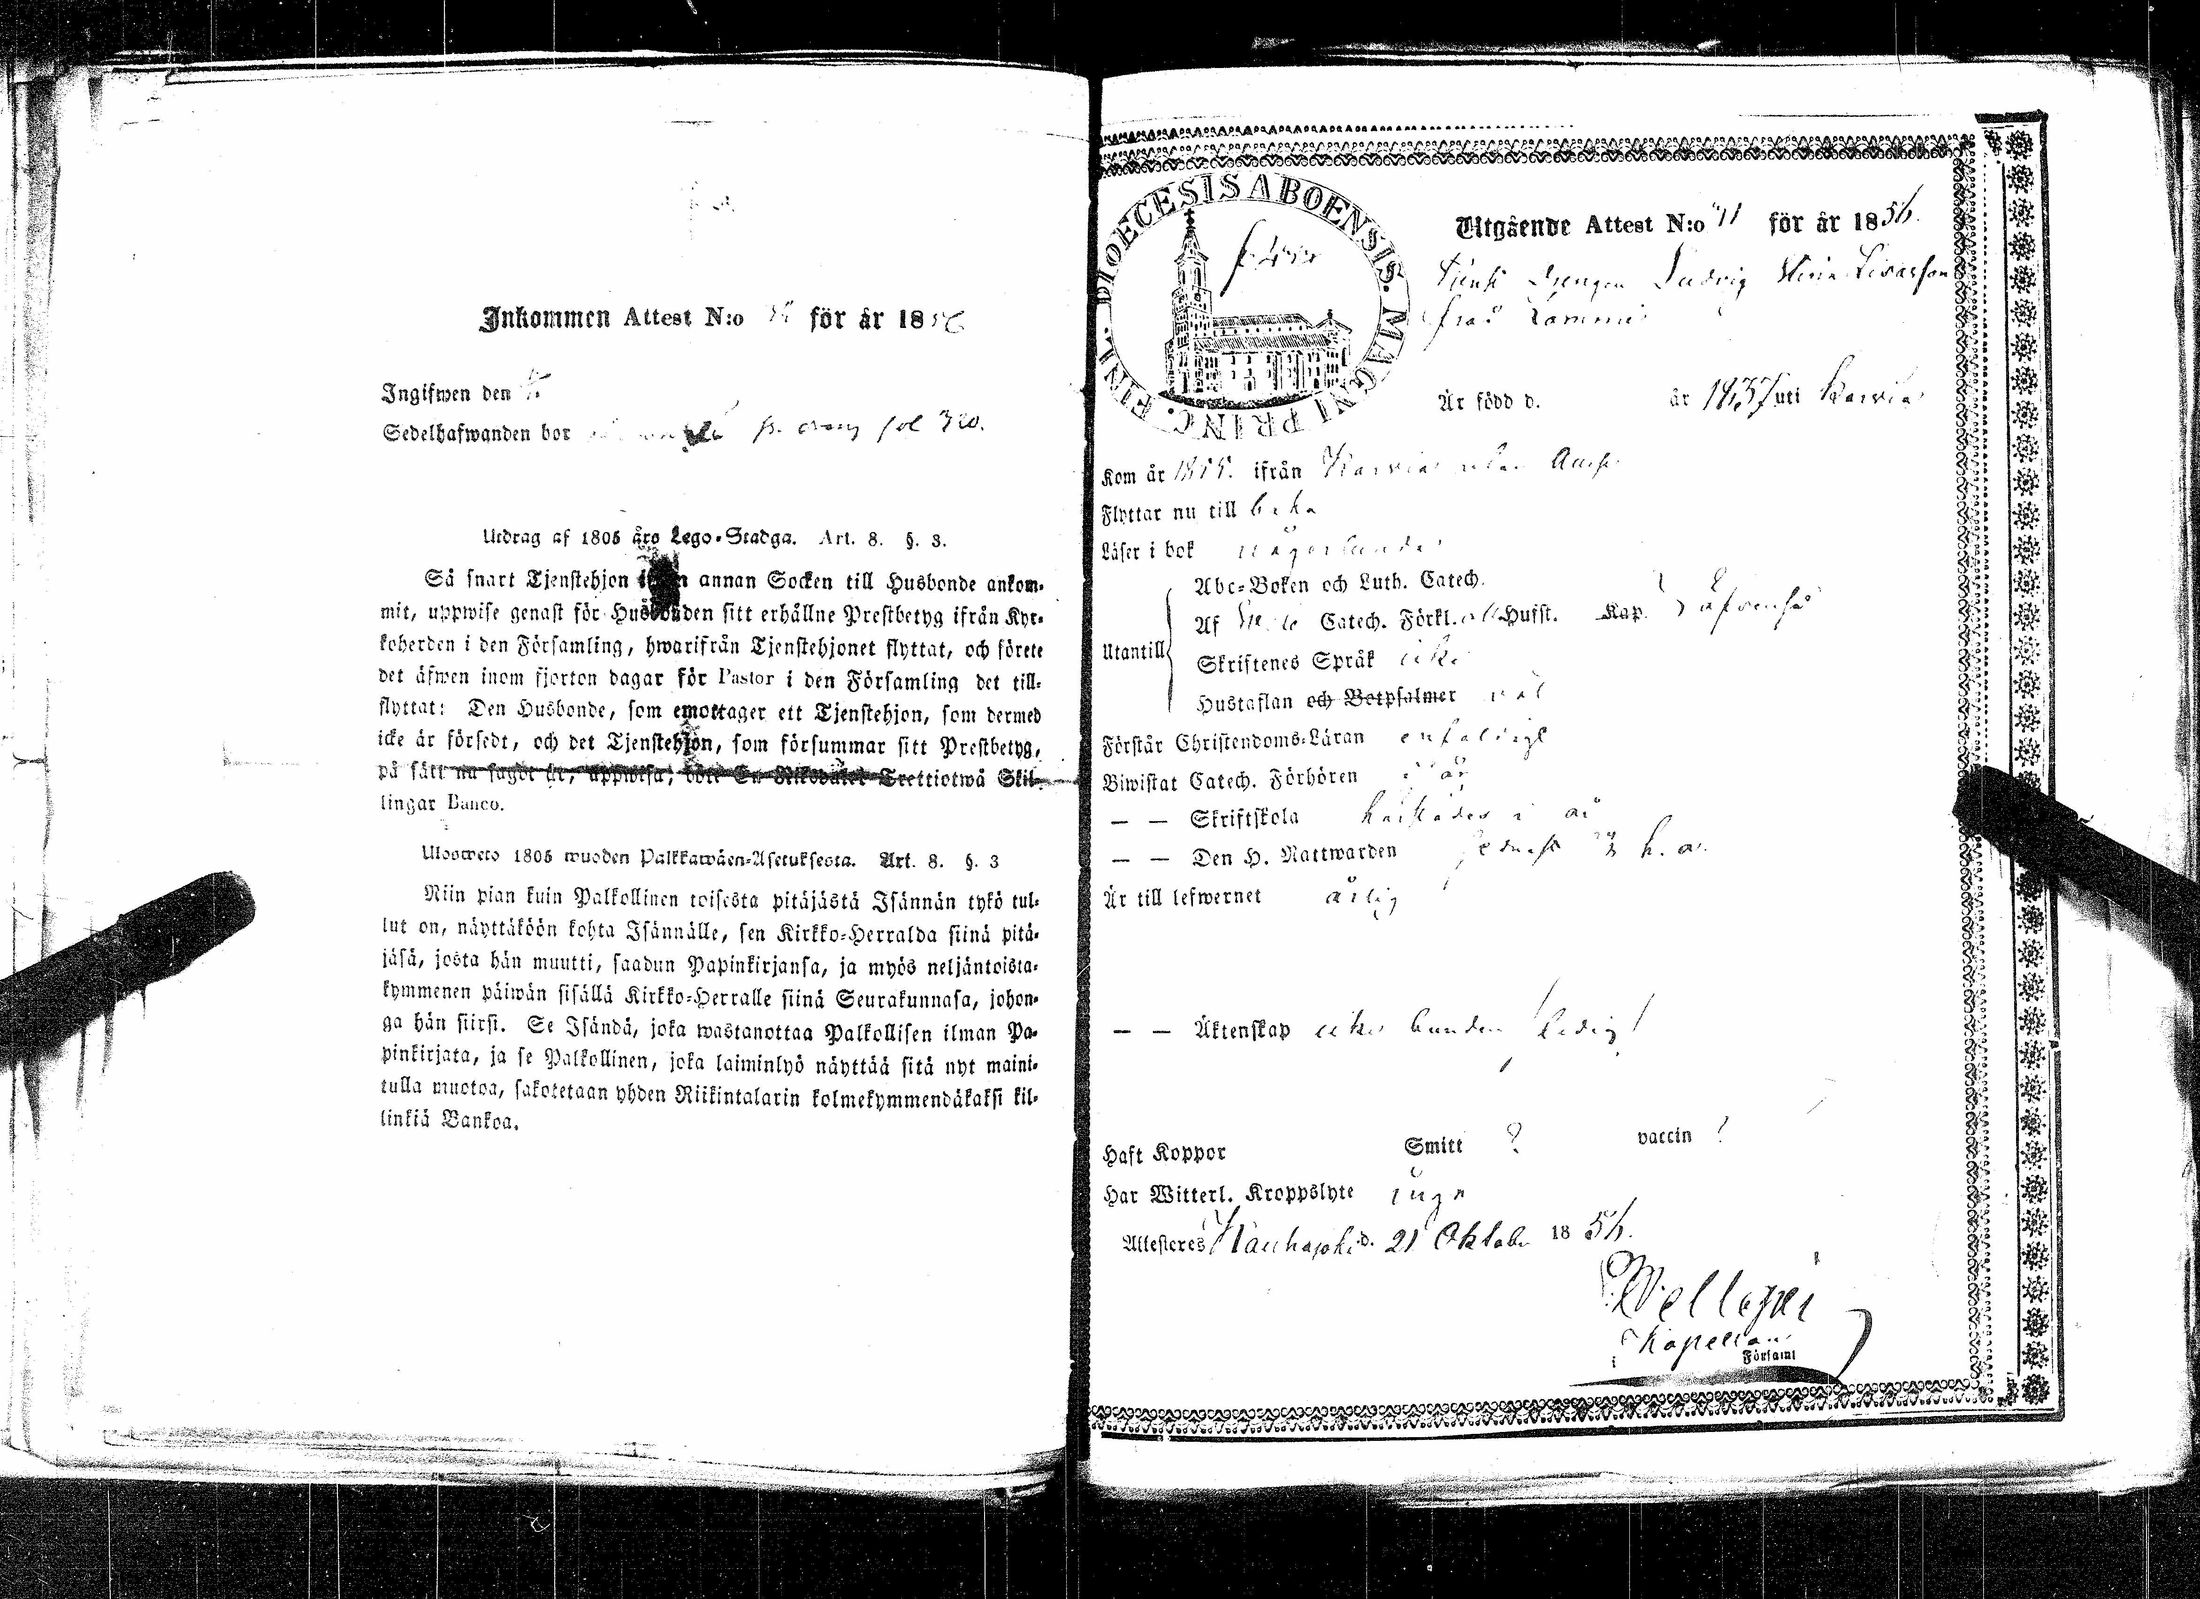 Inkommen Attest N:o för år 1856
Ingifwen den
Sedelhafwanden bor fol 320.
Utdrag af 1805 års Lego-Stadga. Art. 8. §. 3.
Så snart Tjenstehjon annan Socken till Husbonde ankom-
mit, uppwise genast för Husbonden sitt erhållne Prestbetyg ifrån Kyr-
koherden i den Församling, hwarifrån Tjenstehjonet flyttat, och förete
det äfwen inom fjorton dagar för Pastor i den Församling det till-
flyttat: Den Husbonde, som emottager ett Tjenstehjon, som dermed
icke är försedt, och det Tjenstehjon, som försummar sitt Prestbetyg,
på sätt nu sagdt är, uppwisa, böte En Riksdaler Trettiotwå Skil-
lingar Banco.
Ulosweto 1805 wuoden Palkkawäen-Asetuksesta. Art. 8. §. 3
Niin pian kuin Palkollinen toisesta pitäjästä Isännän tykö tul-
lut on, näyttäköön kohta Isännälle, sen Kirkko-Herralda siinä pitä-
jäsä, josta hän muutti, saadun Papinkirjansa, ja myös neljäntoista-
kymmenen päiwän sisällä Kirkko-Herralle siinä Seurakunnasa, johon-
ga hän siirsi. Se Isändä, joka wastanottaa Palkollisen ilman Pa-
pinkirjata, ja se Palkollinen, joka laiminlyö näyttää sitä nyt maini-
tulla muotoa, sakotetaan yhden Riikintalarin kolmekymmendäkaksi kil-
linkiä Bankoa.
DIOECESIS ABOENSIS. MAGNI PRINC. FINL.
Utgående Attest N:o 41 för år 1856.
Drengen Ludvig
från
Är född d. år 1837 uti Karvia
Kom år 1855. ifrån Karvia utan
Flyttar nu till
Läser i bok någorlunda
Abc-Boken och Luth. Catech.
Utantill Af Catech. Förkl. Husst. Kap.
Skriftenes Språk icke
Hustaflan och Botpsalmer väl
Förstår Christendoms-Läran enfaldigt
Biwistat Catech. Förhören i år
— — Skriftskola i år
— — Den H. Nattwarden h. a.
Är till lefwernet ärlig
— — Äktenskap icke bunden /ledig/
Haft Koppor Smitt ? vaccin ?
Har Witterl. Kroppslyte inga
Attesteres Kauhajoki d. 21 Oktober 1856.
Kapellan
i Församl